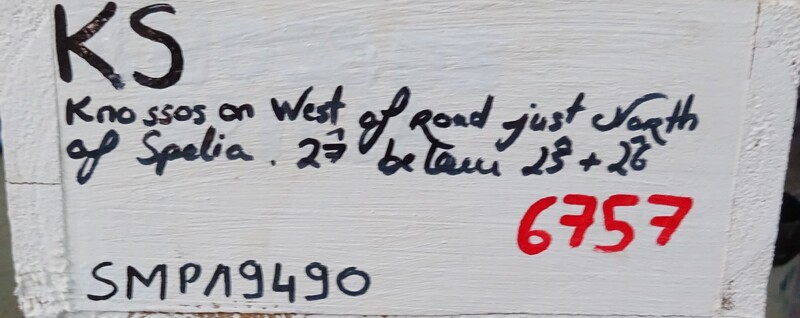 KS
Knossos on West of Road just North
of Spelia. 27 below 25 + 26
6757
SMP19490